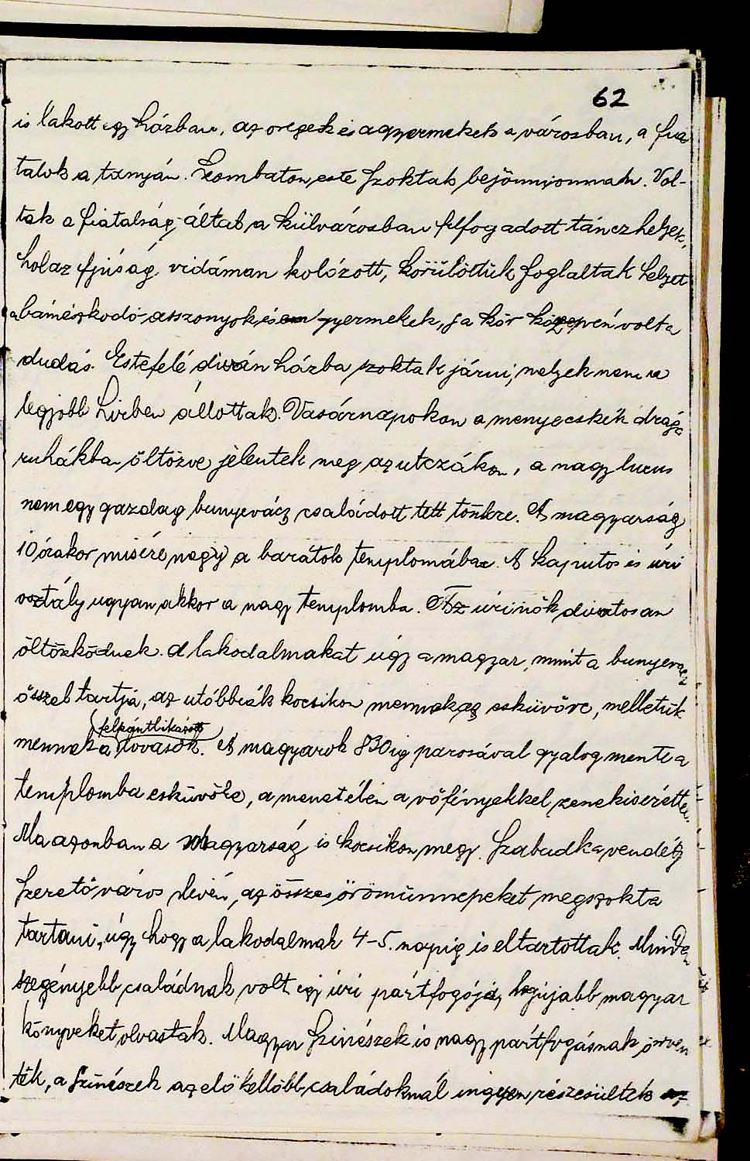 62
is lakott egy házban, az öregek és a gyermekek a városban, a fia
talok a tanyán. Szombaton este szoktak bejönni onnan. Vol-
tak a fiatalság által a külvárosban felfogadott tánczhelyek,
hol az ifjúság vidáman kolózott, körülöttük foglaltak helyet
a bámészkodó asszonyok és gyermekek, s a kör közepén volt a
dudás. Estefelé diván házba szoktak járni, melyek nem a
legjobb hirben állottak. Vasárnapokon a menyecskék drága
ruhákba öltözve jelentek meg az utczákon, a nagy luxus
nem egy gazdag bunyevácz családott tett tönkre. A magyarság
10 órakor misére megy a barátok templomába. A kaputos és úri
osztály ugyanakkor a nagy templomba. Az úrinők divatosan
öltözködnek. A lakodalmakat úgy a magyar, mint a bunyevácz
ősszel tartja, az utóbbiak kocsikon mennek az esküvőre, mellettük
felpántlikázott
mennek a lovasok. A magyarok 830ig parosával gyalog mente a
templomba esküvőre, a menet élén a vőfényekkel zene kiserette.
Ma azonban a magyarság is kocsikon megy. Szabadka vendég
szerető város lévén, az összes örömünnepeket megszokta
tartani, úgy hogy a lakodalmak 4-5. napig is eltartottak. Minden
szegényebb családnak volt egy úri pártfogója, legújabb magyar
könyveket olvastak. Magyar szinészek is nagy pártfogásnak örven
tek, a szinészek az elő kellőbb családoknál ingyen részesültek az